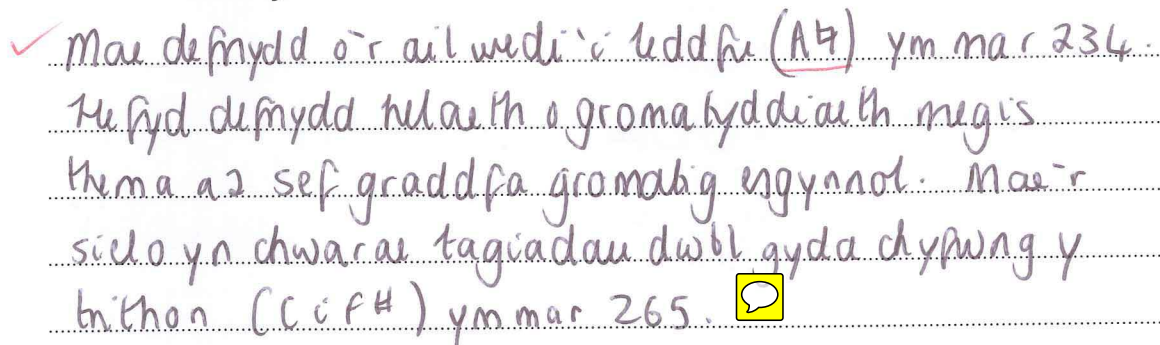 Mae defnydd o'r ail wedi'i leddfu (A♮) ym mar 234.
Hefyd defnydd helaeth o gromatyddiaeth megis
thema a2 sef graddfa gromatig esgynnol. Mae'r
sielo yn chwarae tagiadau dwbl gyda chyfwng y
trithon (C i F#) ym mar 265.